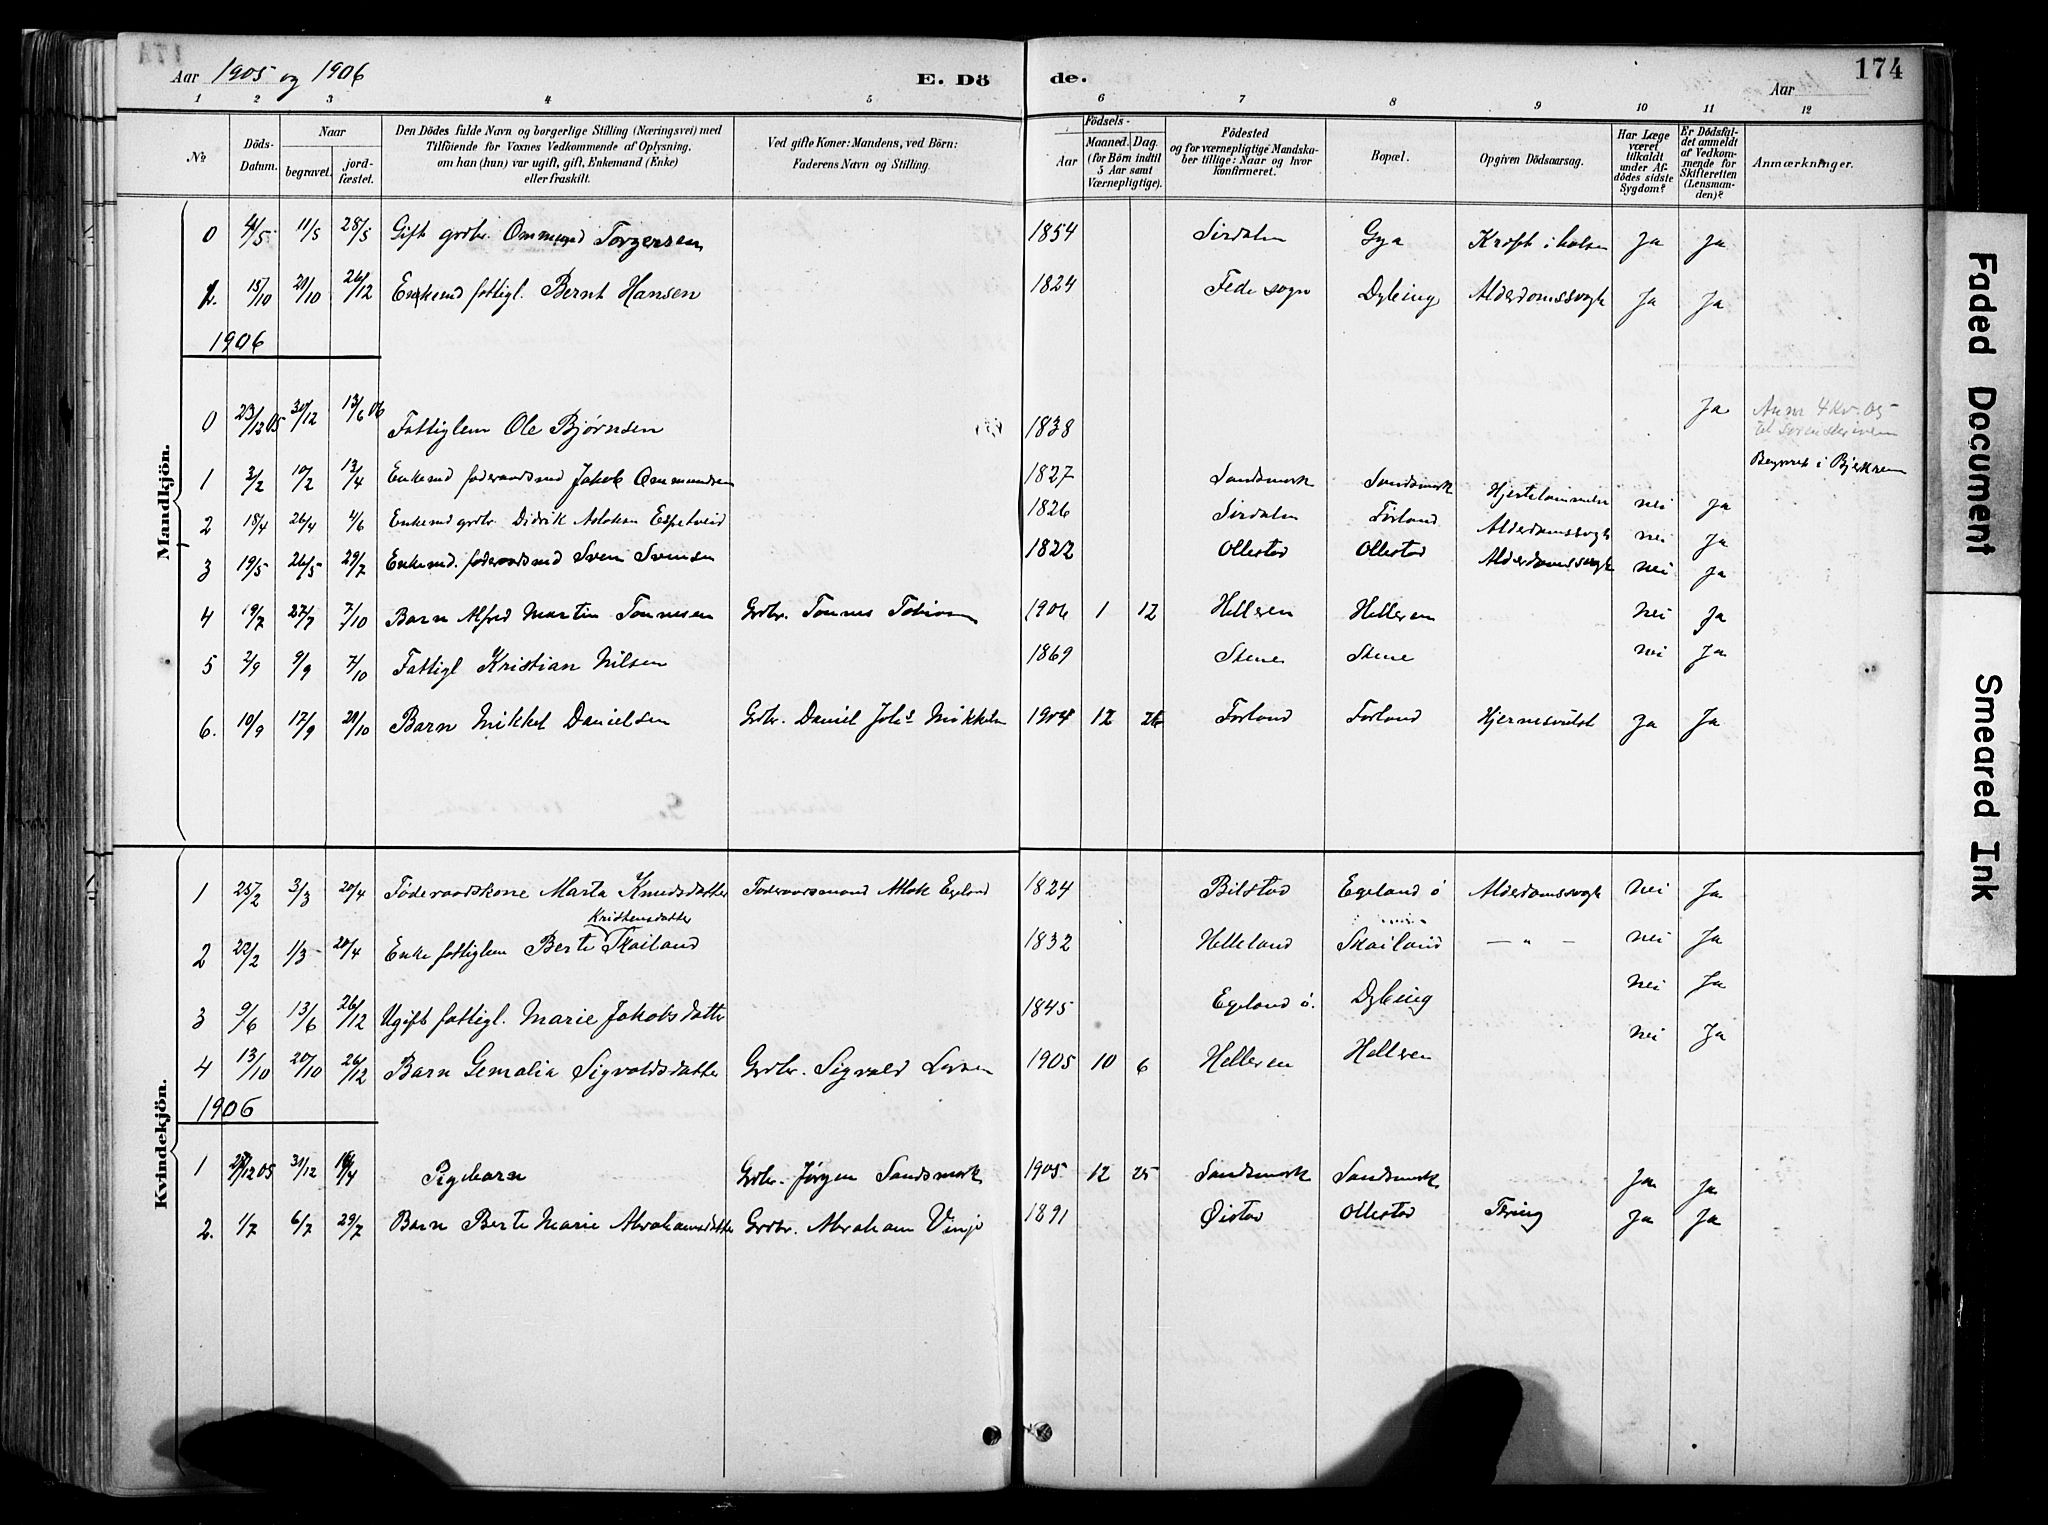 Aar 1905 og 1906 E. Dö de. Aar 174
1 2 3 4 5 6 7 8 9 10 11 12
No. Döds-Datum. Naar begravet. jordfæstet. Den Dödes fulde Navn og borgerlige Stilling (Næringsvei) med Tilföiende for Voxnes Vedkommende af Oplysning, om han (hun) var ugift, gift, Enkemand (Enke) eller fraskilt. Ved gifte Koner: Mandens, ved Börn: Faderens Navn og Stilling. Födsels- Aar Maaned. Dag. (for Börn indtil 5 Aar samt Værnepligtige). Födested og for værnepligtige Mandskaber tillige: Naar og hvor konfirmeret. Bopæl. Opgiven Dödsaarsag. Har Læge været tilkaldt under Afdödes sidste Sygdom? Er Dödsfaldet anmeldt af Vedkommende for Skifteretten (Lensmanden)? Anmærkninger.
Mandkjön.
0 4/5 11/5 28/5 Gift grdbr. Ommund Torgersen 1854 Sirdalen Gya Kræft i halsen Ja Ja
1. 15/10 21/10 26/12 Enkemd fattigl. Bernt Hansen 1824 Fede sogn Dybing Alderdomssvagh Ja Ja
1906
0 23/12 05 30/12 13/6 06 Fattiglem Ole Bjørnsen 1838 Ja Anm 4 Kv. 05
til sorenskriveren
1 3/2 10/2 13/4 Enkemd føderaadsmd Jakob Ommundsen 1827 Sandsmork Sandsmork Hjertelammelse nei Ja Begravet i Bjerkreim
2 18/4 26/4 4/6 Enkemd grdbr. Didrik Aslaksen Espetveid 1826 Sirdalen Førland Alderdomssvagh nei Ja
3 19/5 26/5 29/7 Enkemd. føderaadsmd Sven Svensen 1822 Ollestad Ollestad Alderdomssvagh nei Ja
4 19/7 27/7 7/10 Barn Alfred Martin Tønnesen Grdbr. Tønnes Tobiasen 1906 1 12 Helleren Helleren nei Ja
5 2/9 9/9 7/10 Fattigl Kristian Nilsen 1869 Stene Stene nei Ja
6. 10/9 17/9 21/10 Barn Mikkel Danielsen Grdbr. Daniel Johs Mikkelsen 1904 12 26 Førland Førland Hjernesvulst Ja Ja
Kvindekjön.
1 25/2 3/3 20/4 Føderaadskone Marta Knudsdatter Føderaadsmand Aslak Egeland 1824 Bilstad Egeland ø Alderdomssvagh nei Ja
Kristensdatter
2 22/2 1/3 20/4 Enke fattiglem Berte Skailand 1832 Helleland Skailand — " — nei Ja
3 9/6 13/6 26/12 Ugift fattigl. Marie Jakobsdatter 1845 Egeland ø. Dybing nei Ja
4 13/10 20/10 26/12 Barn Gemalia Sigvaldsdatter Grdbr. Sigvald Larsen 1905 10 6 Helleren Helleren nei Ja
1906
1 27/12 05 31/12 16/4 Pigebarn Grdbr. Jørgen Sandsmork 1905 12 25 Sandsmork Sandsmork Ja Ja
2. 1/7 6/7 29/7 Barn Berte Marie Abrahamsdatter Grdbr. Abraham Vinje 1891 Øistad Ollestad Tæring Ja Ja
Faded Document
Smeared Ink